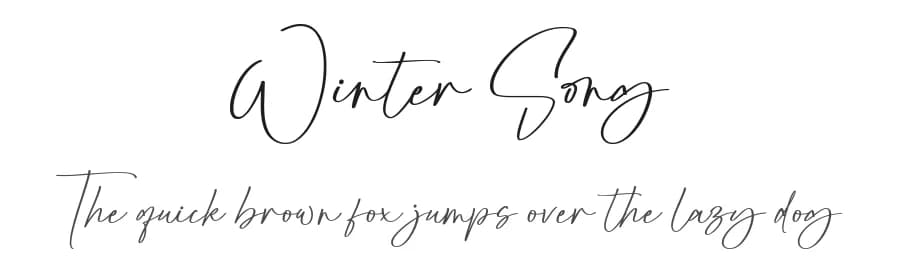 Winter Song
The quick brown fox jumps over the lazy dog